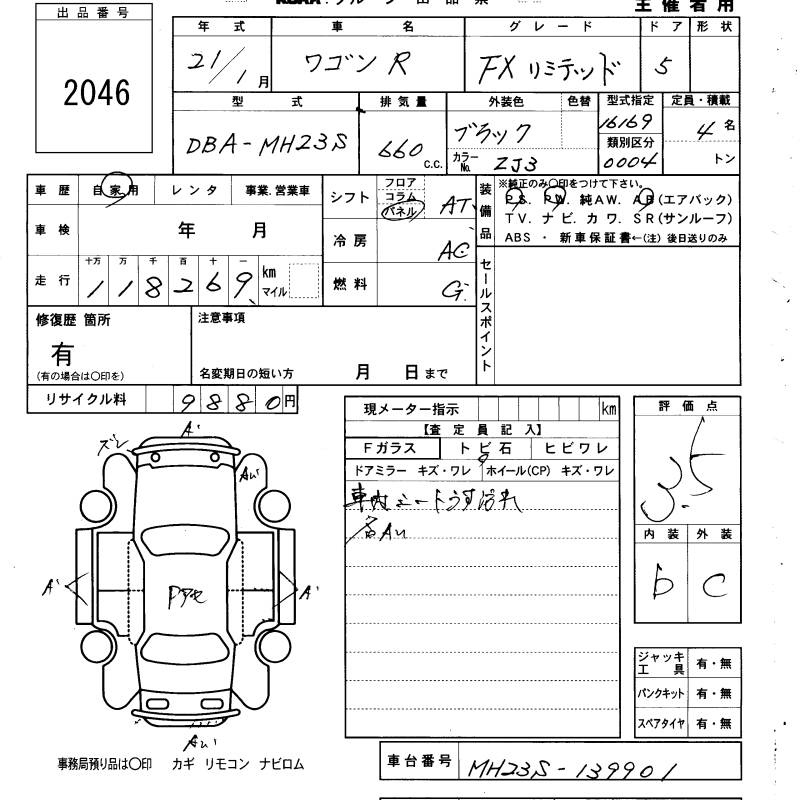 出品番号
2046
主催者用
年式 車名 グレード ドア 形状
21/1月 ワゴンR FXリミテッド 5
型式 排気量 外装色 色替 型式指定 定員・積載
DBA-MH23S 660c.c. ブラック 16169 4名
カラーNo. ZJ3 類別区分 0004 トン
車歴 自家用 レンタ 事業.営業車
車検 年 月
走行 十万 万 千 百 十 一
118269 km マイル
シフト フロア コラム パネル AT
冷房 AC
燃料 G
装備品 ※純正のみ〇印をつけて下さい。
PS. PW. 純AW. AB(エアバック)
TV. ナビ. カワ. SR(サンルーフ)
ABS ・ 新車保証書←(注) 後日送りのみ
セールスポイント
修復歴 箇所
有
(有の場合は〇印を)
注意事項
名変期日の短い方 月 日まで
リサイクル料 9880円
現メーター指示 km
【査定員記入】
Fガラス トビ石 ヒビワレ
ドアミラー キズ・ワレ ホイール(CP) キズ・ワレ
車内シートうす汚れ
各AU
評価点
3.5
内装 外装
b C
ズレ A' AU'
A' Pアセ A'
AU'
ジャッキ工具 有・無
パンクキット 有・無
スペアタイヤ 有・無
事務局預り品は〇印 カギ リモコン ナビロム
車台番号 MH23S-139901